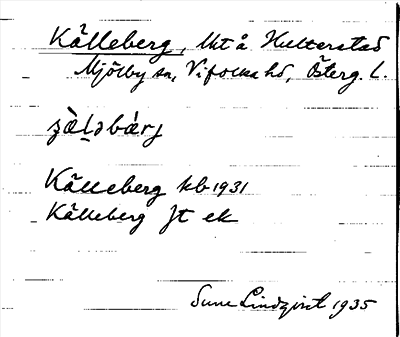 Källeberg, lht å Hulterstad
Mjölby sn, Vifolka hd, Österg. L.
Källeberg kb 1931
Källeberg Jt ek
Sune Lindqvist 1935